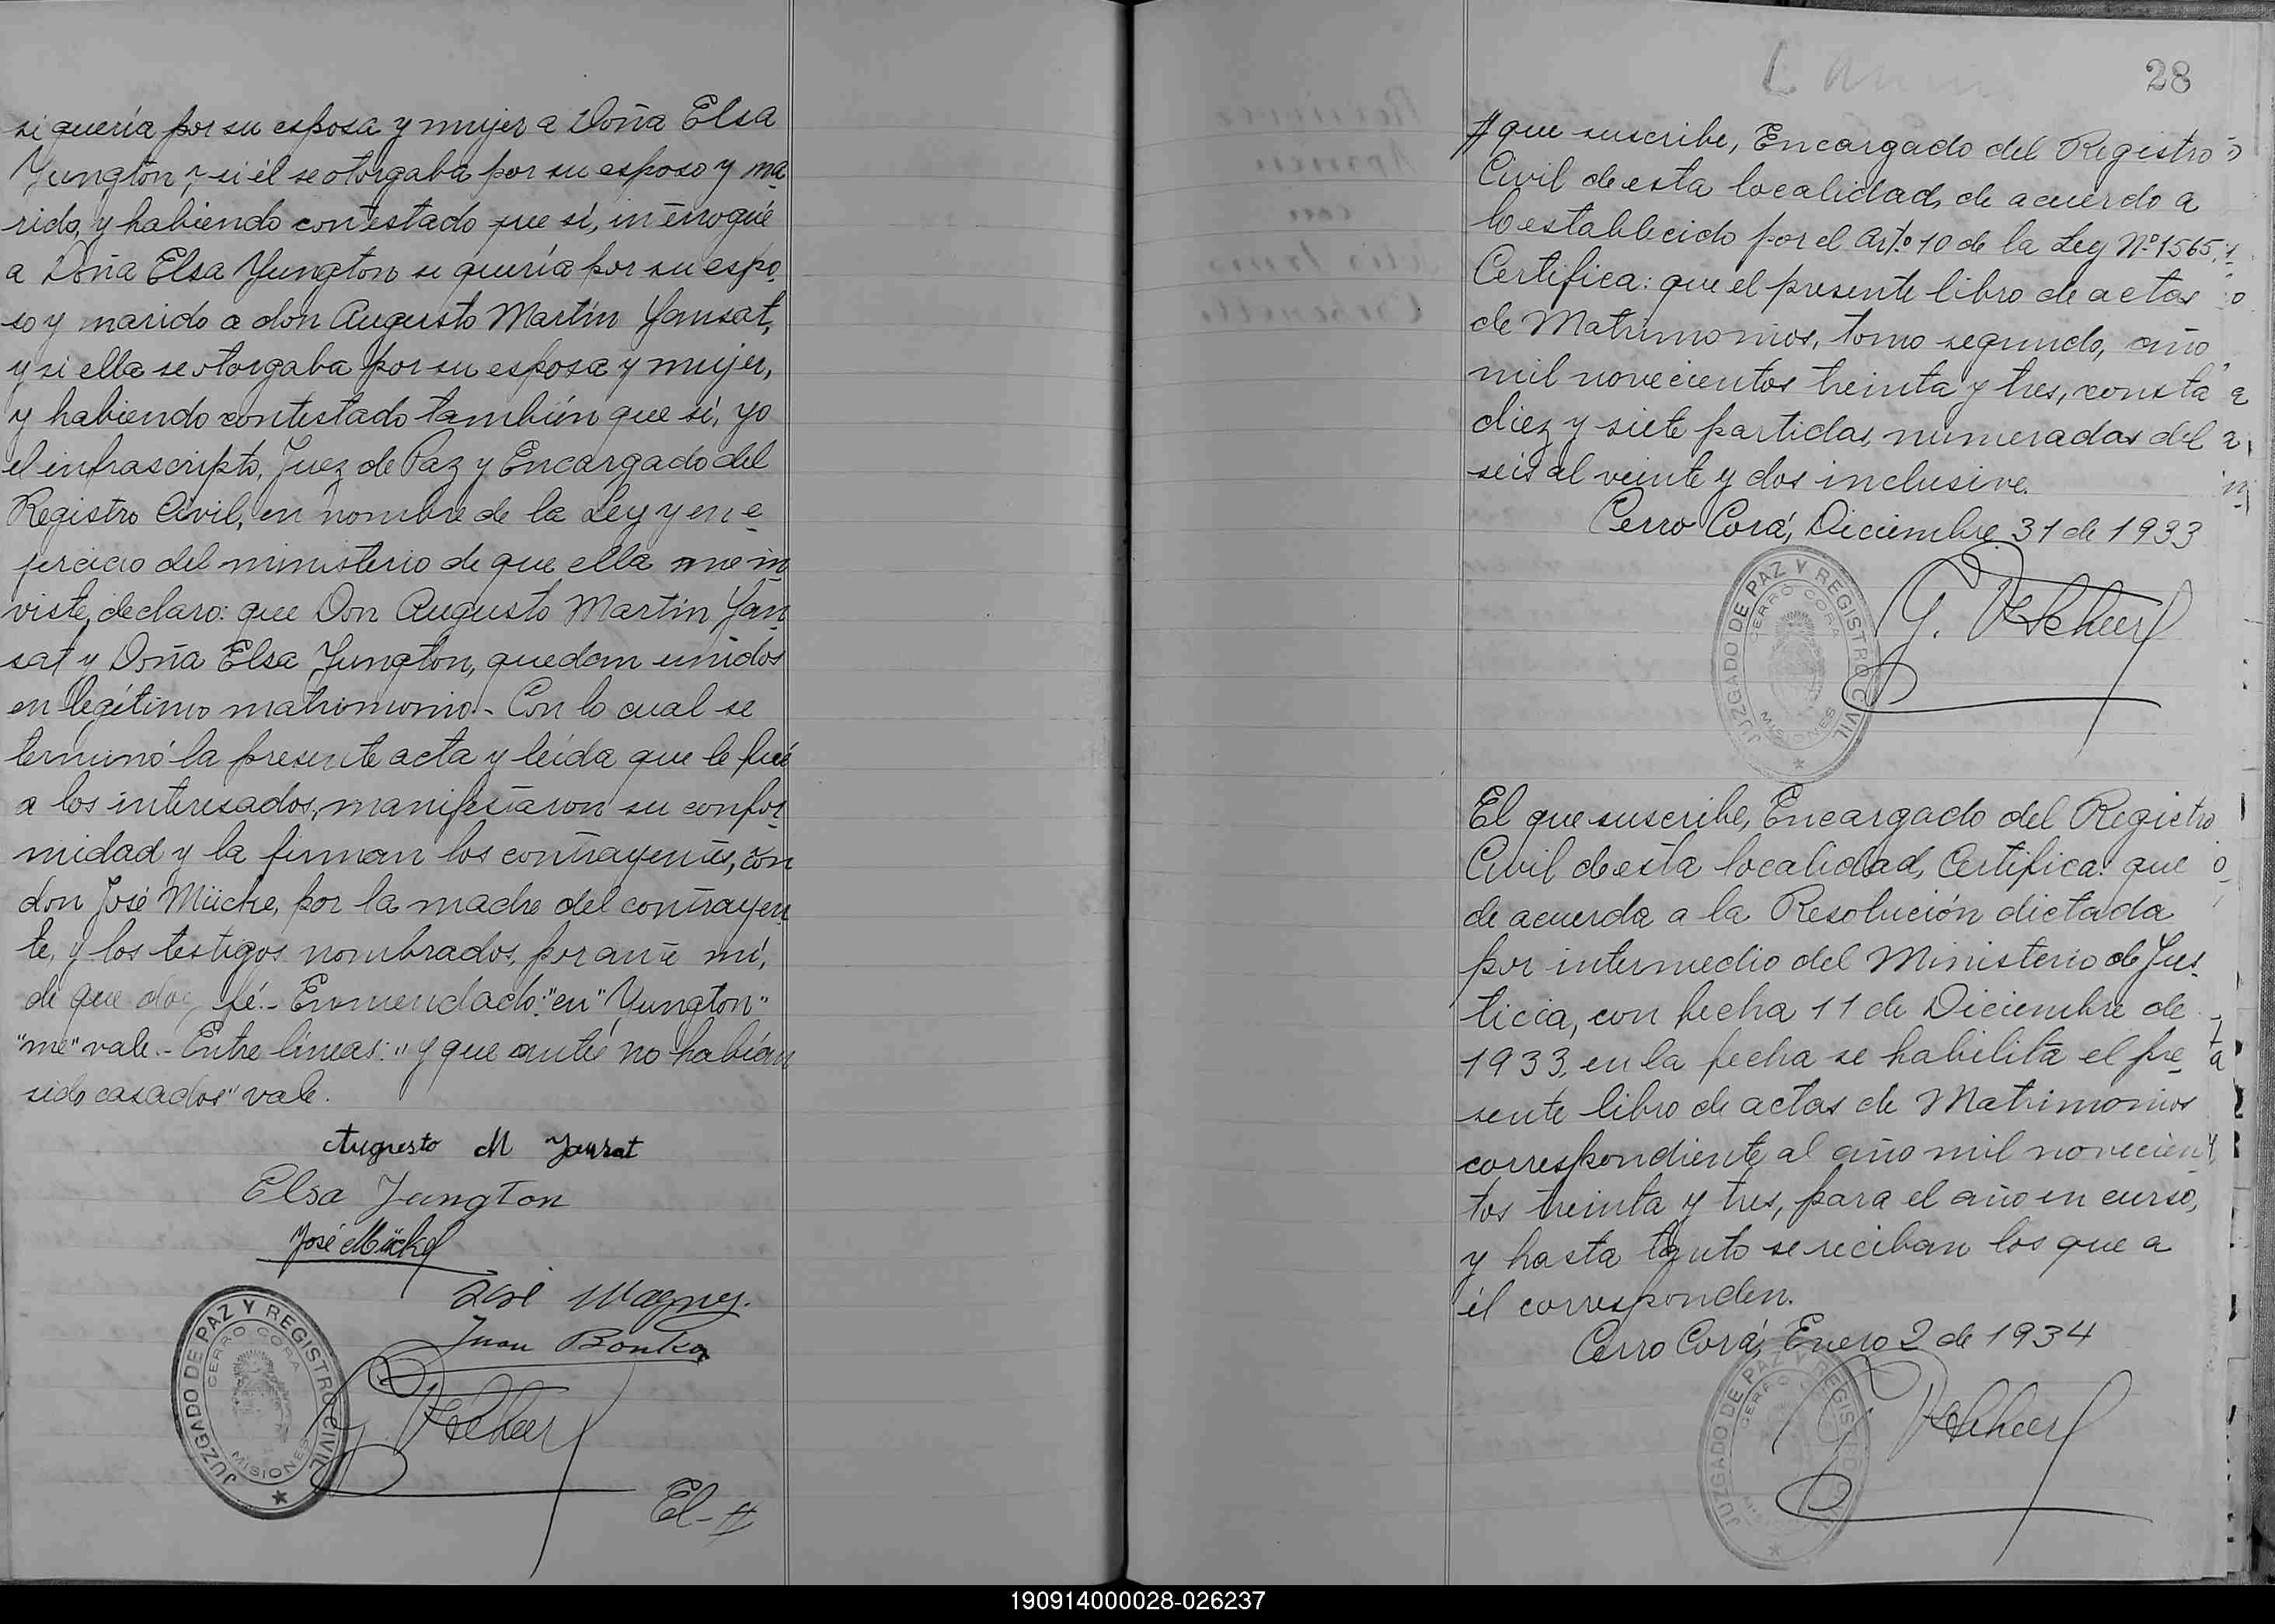 si quería por su esposa y mujer a Doña Elsa
Yungton, y si él se otorgaba por su esposo y ma-
rido, y habiendo contestado que sí, interrogué
a Doña Elsa Yungton si quería por su espo-
so y marido a don Augusto Martín Yansat,
y si ella se otorgaba por su esposa y mujer,
y habiendo contestado también que sí, yo
el infrascripto, Juez de Paz y Encargado del
Registro Civil, en nombre de la Ley y en e-
jercicio del ministerio de que ella me in-
viste, declaro: que Don Augusto Martín Yan-
sat y Doña Elsa Yungton, quedan unidos
en legítimo matrimonio.- Con lo cual se
terminó la presente acta y leída que le fué
a los interesados, manifestaron su confor-
midad y la firman los contrayentes, con
don José Mücke, por la madre del contrayen-
te, y los testigos nombrados, por ante mí,
de que doy fé.- Enmendado: "en" "Yungton"
"me" vale.- Entre líneas: "y que ante no habían
sido casados" vale.
Augusto M Yansat
Elsa Jungton
José Mücke
José Wagner.
Juan
JUZGADO DE PAZ Y REGISTRO CIVIL
CERRO CORA
MISIONES
El-#
28
# que suscribe, Encargado del Registro
Civil de esta localidad, de acuerdo a
lo establecido por el Art.º 10 de la Ley Nº 1565,
Certifica: que el presente libro de actas
de Matrimonios, tomo segundo, año
mil novecientos treinta y tres, consta
diez y siete partidas, numeradas del
seis al veinte y dos inclusive.
Cerro Corá, Diciembre 31 de 1933
JUZGADO DE PAZ Y REGISTRO CIVIL
CERRO CORA
MISIONES
El que suscribe, Encargado del Registro
Civil de esta localidad, Certifica: que
de acuerdo a la Resolución dictada
por intermedio del Ministerio de Jus-
ticia, con fecha 11 de Diciembre de
1933, en la fecha se habilita el pre-
sente libro de actas de Matrimonios
correspondiente al año mil novecien-
tos treinta y tres, para el año en curso,
y hasta tanto se reciban los que a
él corresponden.
Cerro Corá, Enero 2 de 1934
JUZGADO DE PAZ Y REGISTRO CIVIL
CERRO
190914000028-026237